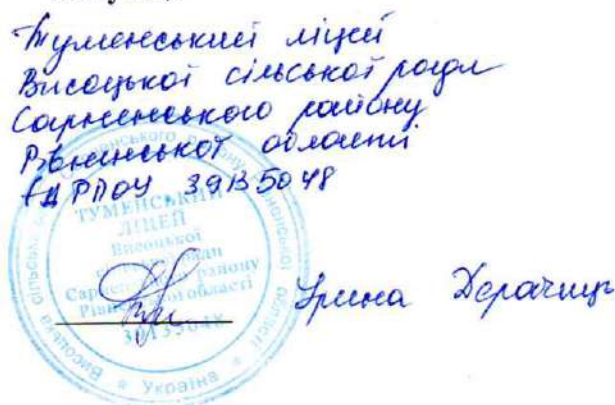 Туменський ліцей
Висоцької сільської ради
Сарненського району
Рівненської області
ЄДРПОУ 39135048
ТУМЕНСЬКИЙ
ЛІЦЕЙ
Висоцької
сільської ради
Сарненського району
Рівненської області
39135048
Україна
Ірина Дерачиць